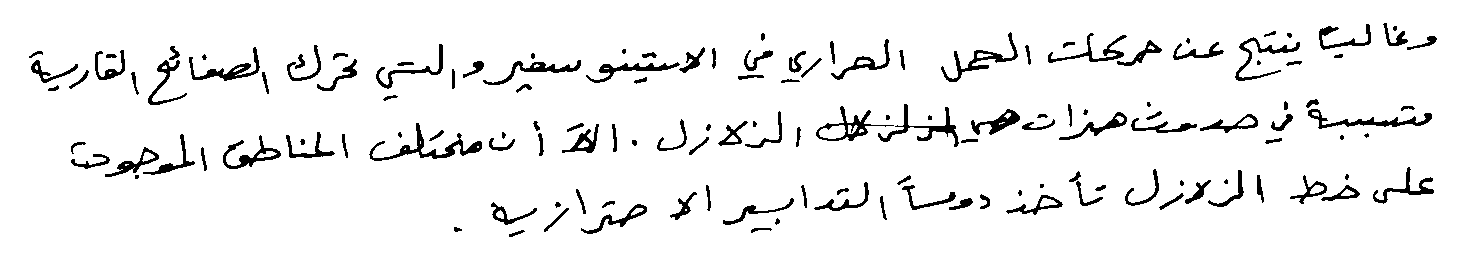 وغالباً ينتج عن حركات الحمل الحراري في الاستينوسفير والتي تحرك الصفائح القارية
متسببة في حدوث هزات الزلازل . الاّ أن مختلف المناطق الموجودة
على خط الزلازل تأخذ دوماً التدابير الاحترازية .